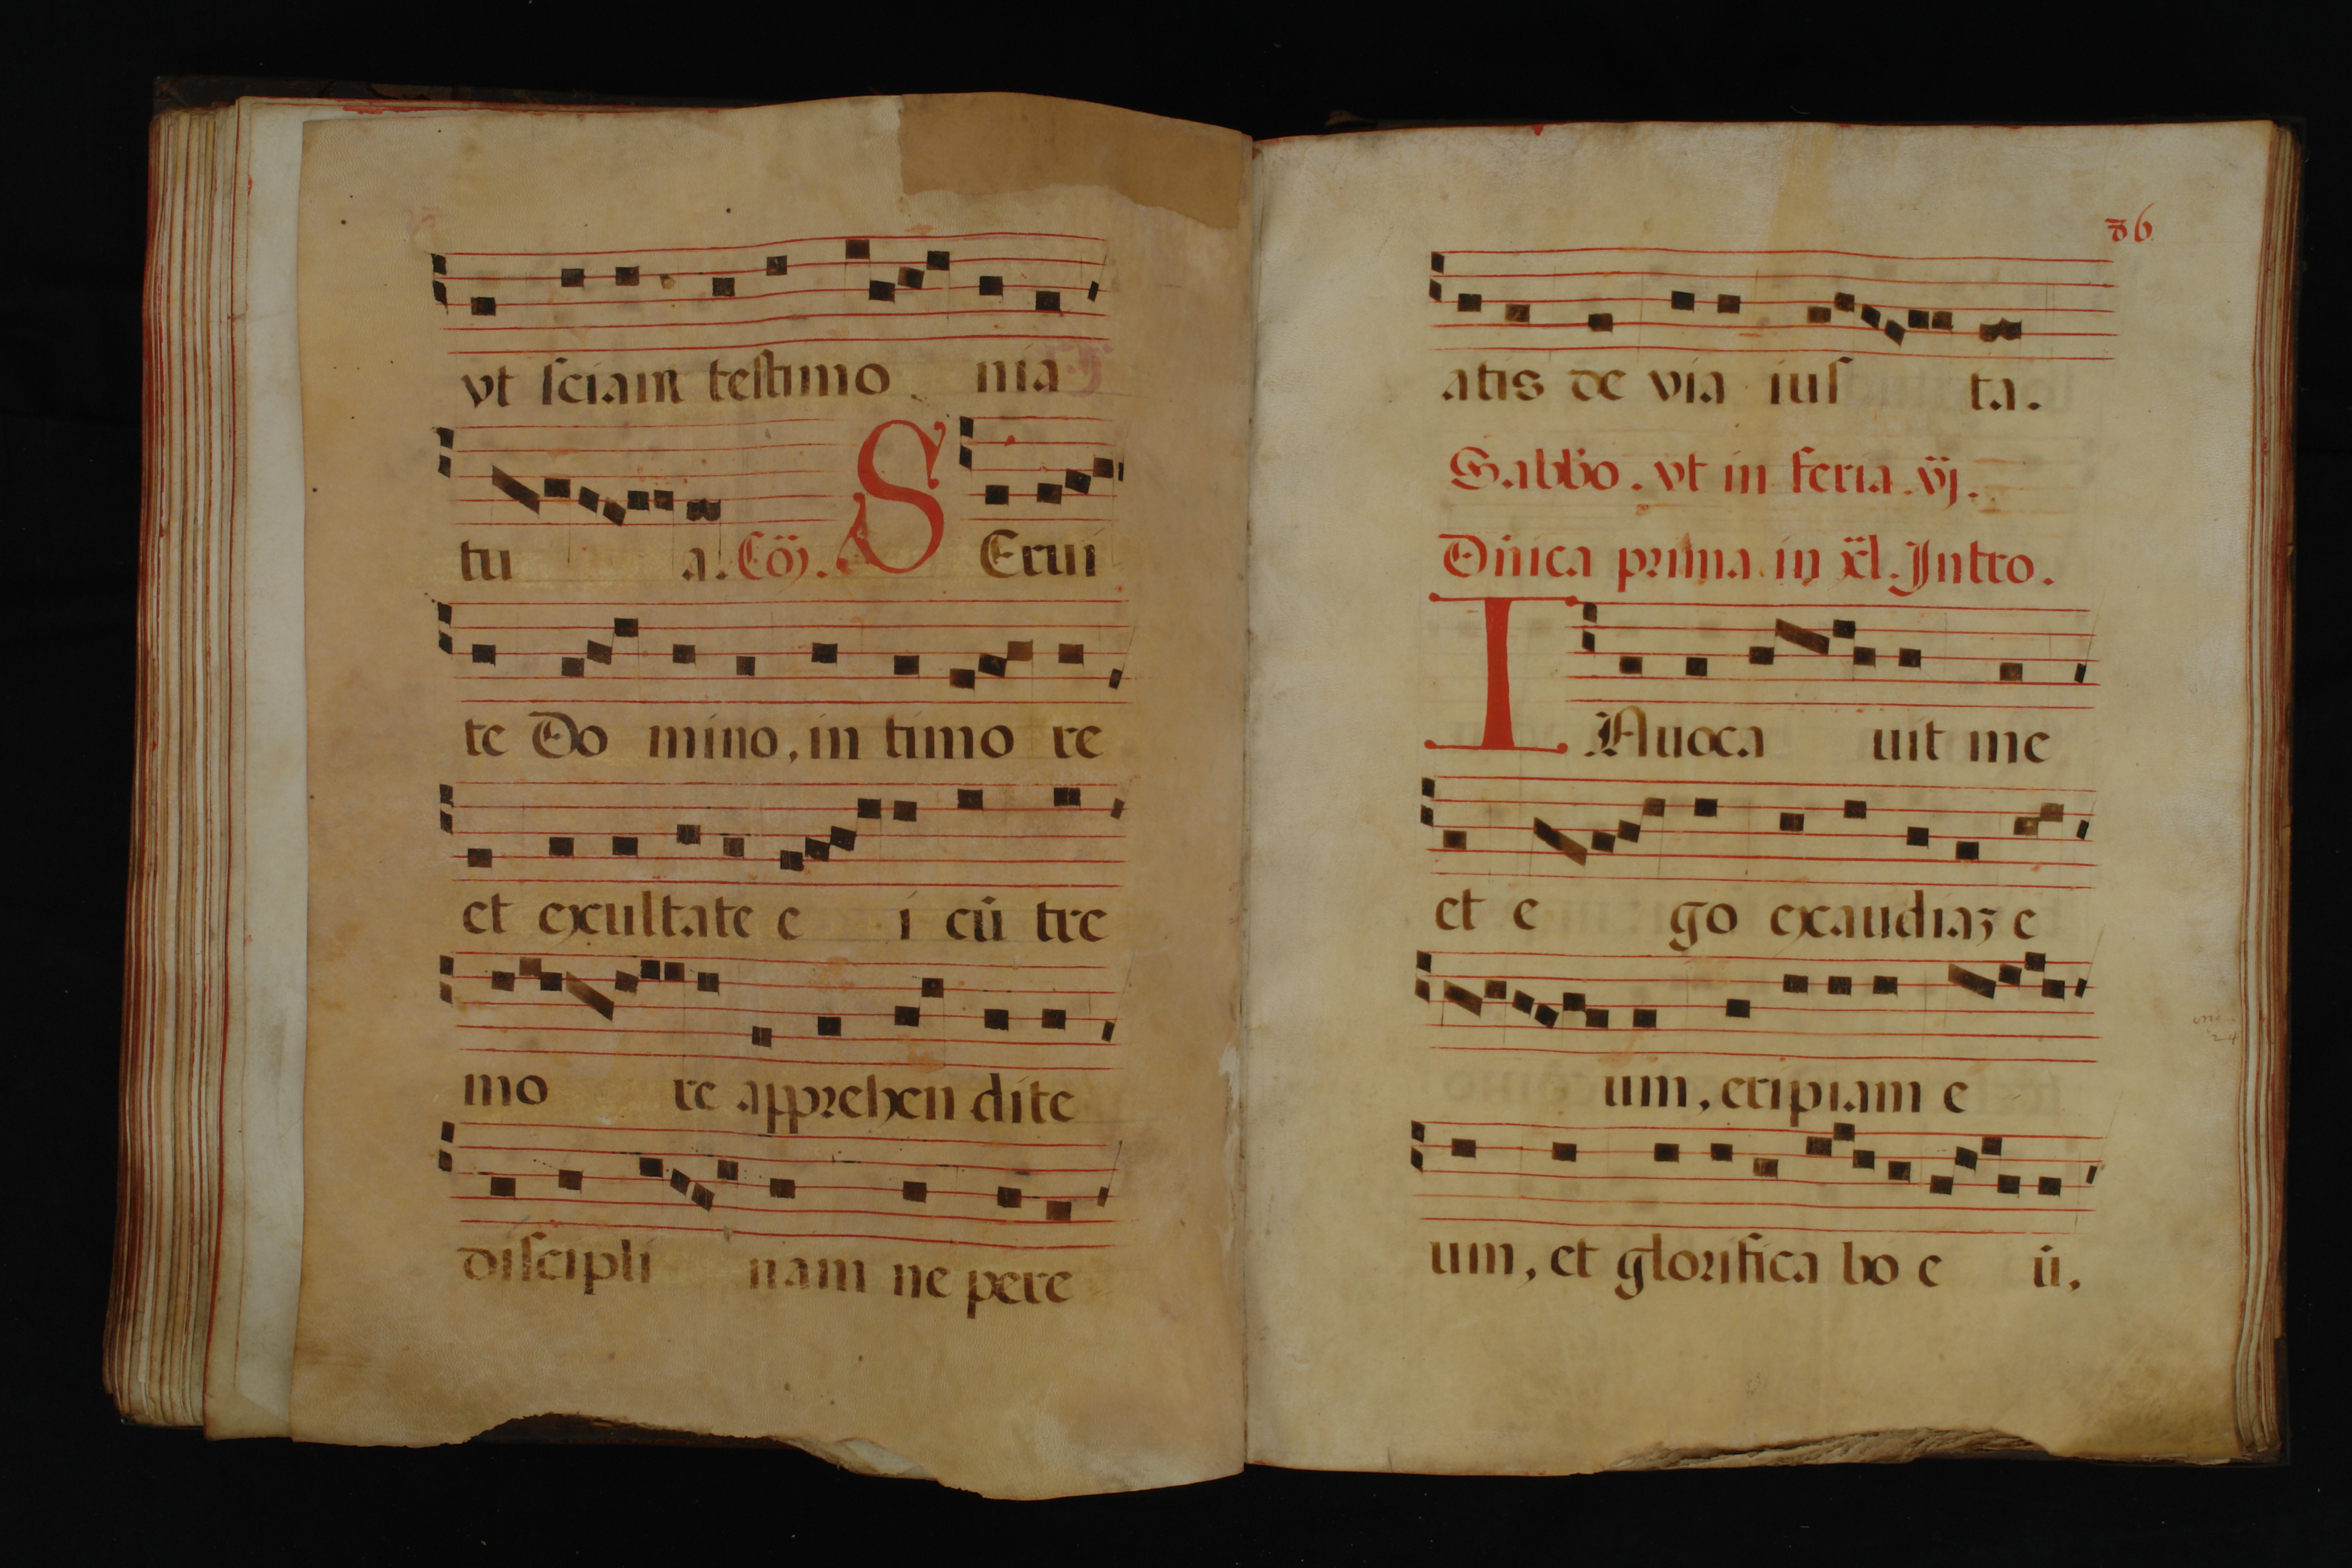 vt sciam testimo nia
tu a. Cō̃. S Erui
te Do mino, in timo re
et exultate e i cū tre
mo re apprehen dite
discipli nam ne pere
86
atis de via ius ta.
Sabbo. vt in feria. vj.
Dñica prima in xl. Intro.
I Nuoca uit me
et e go exaudiaʒ e
um, eripiam e
um, et glorifica bo e ū,